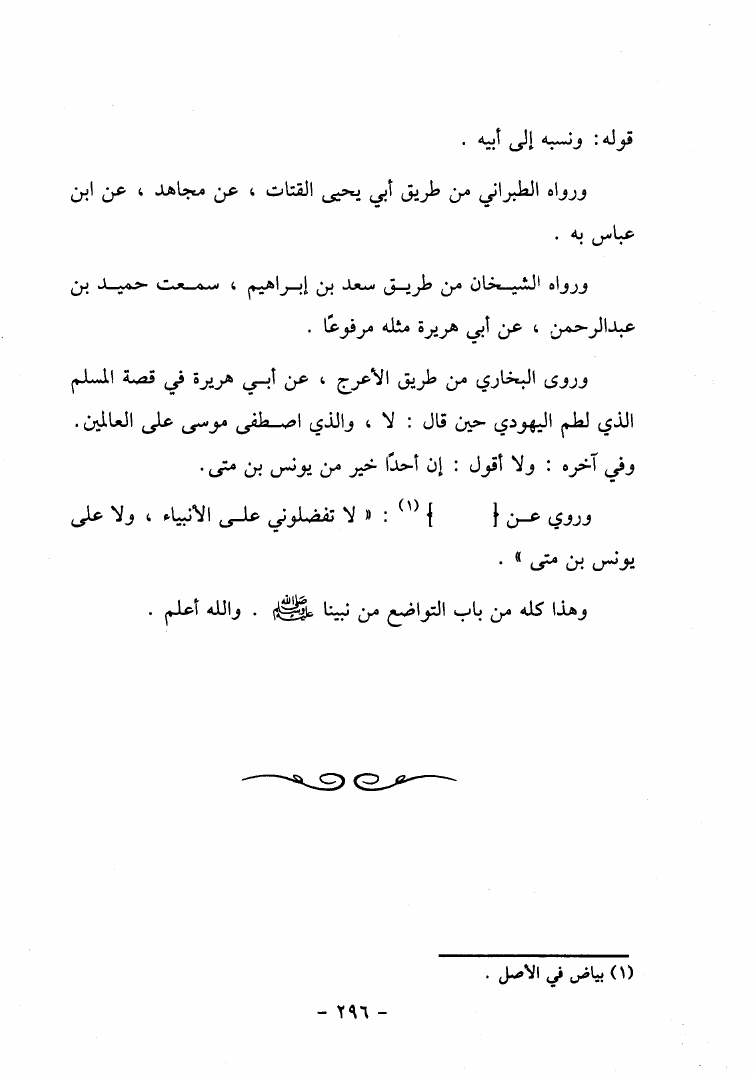 قوله: ونسبه إلى أبيه .
ورواه الطبراني من طريق أبي يحيى القتات ، عن مجاهد ، عن ابن
عباس به .
ورواه الشيخان من طريق سعد بن إبراهيم ، سمعت حميد بن
عبدالرحمن ، عن أبي هريرة مثله مرفوعًا .
وروى البخاري من طريق الأعرج ، عن أبي هريرة في قصة المسلم
الذي لطم اليهودي حين قال : لا ، والذي اصطفى موسى على العالمين.
وفي آخره : ولا أقول : إن أحدًا خير من يونس بن متى.
وروي عن { } (١) : « لا تفضلوني على الأنبياء ، ولا على
يونس بن متى » .
وهذا كله من باب التواضع من نبينا ﷺ . والله أعلم .
(١) بياض في الأصل .
- ٢٩٦ -